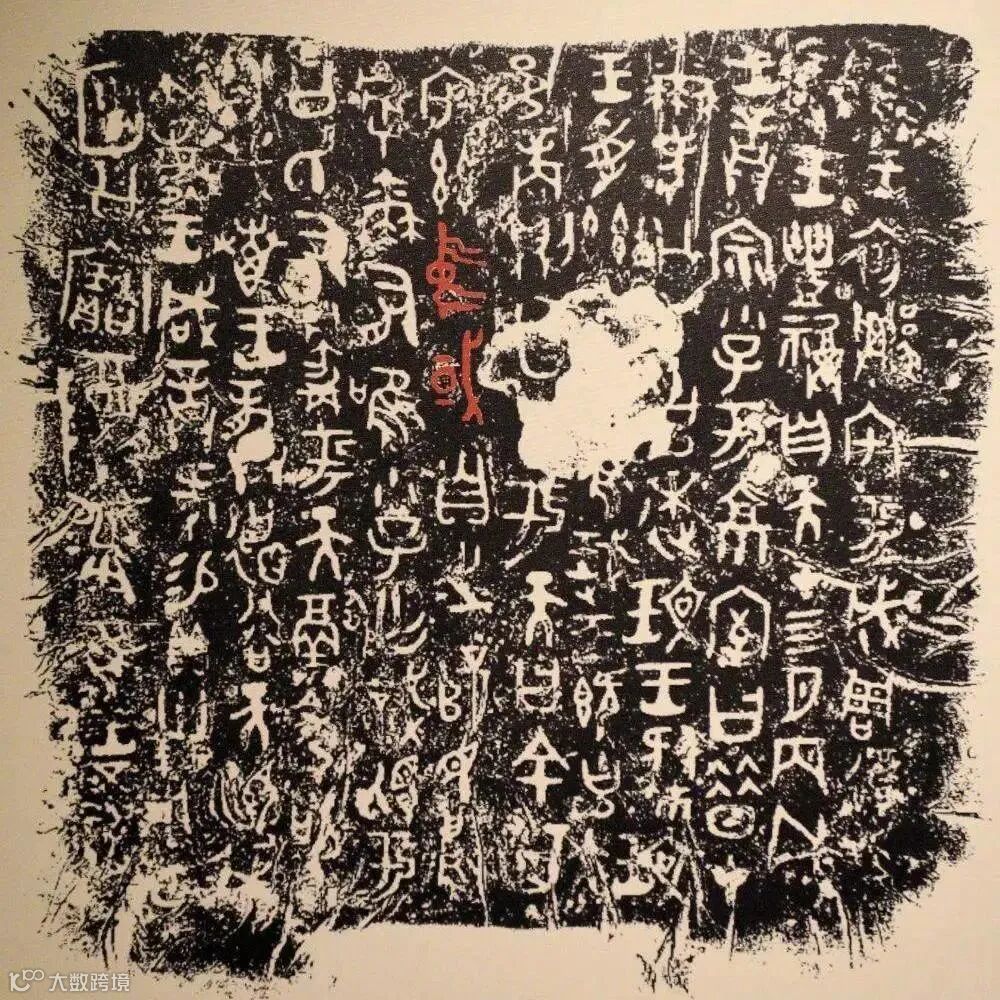 隹王初遷宅于成周復爯
珷王豐祼自天才四月丙戌
王誥宗小子于京室曰昔才
爾考公氏克逨玟王肆玟
王受茲隹珷王既克大
邑商則廷告于天曰余其
宅茲中或自之乂民烏
乎爾有唯小子亡識視于
公氏有爵于天徹令敬
享哉叀王恭德谷天順我
不敏王咸誥何易貝卅朋用乍
公寶尊彝隹王五祀
大数跨境